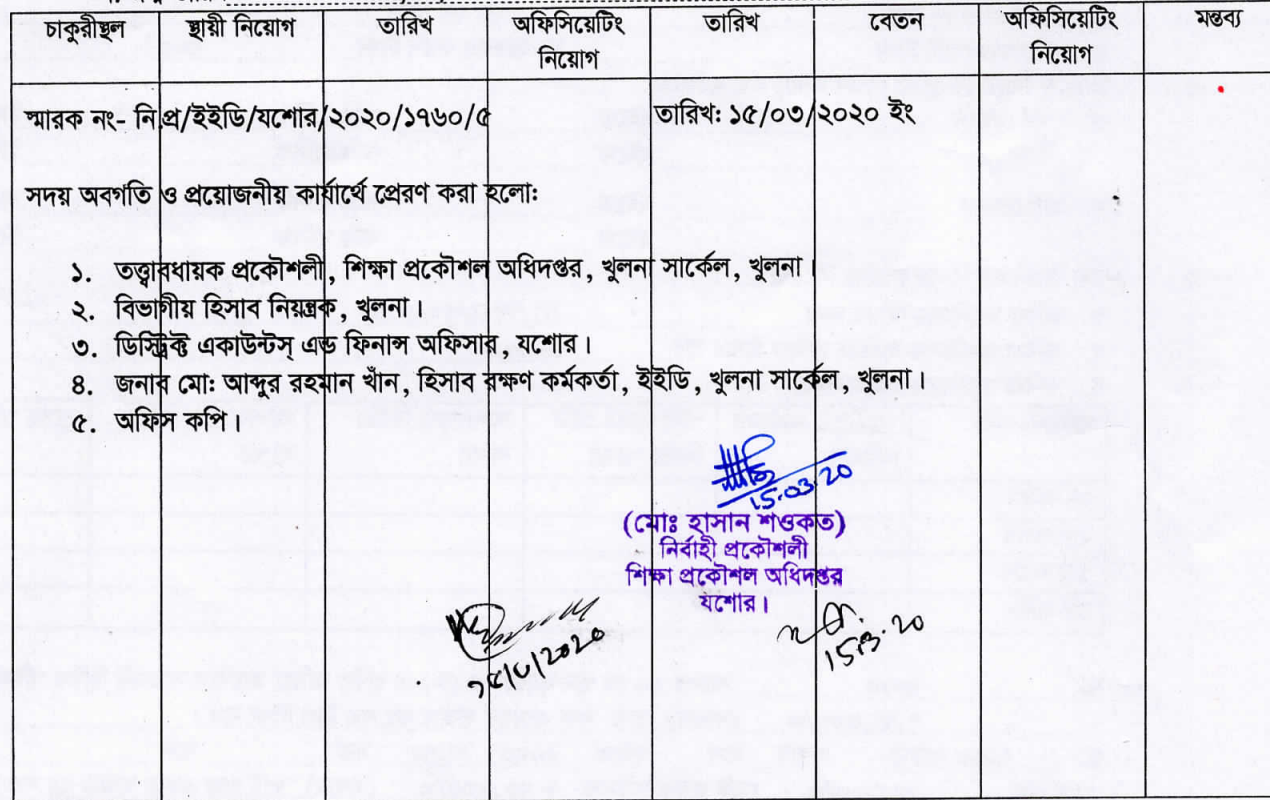 চাকুরীস্থল স্থায়ী নিয়োগ তারিখ অফিসিয়েটিং নিয়োগ তারিখ বেতন অফিসিয়েটিং নিয়োগ মন্তব্য
স্মারক নং- নি.প্র/ইইডি/যশোর/২০২০/১৭৬০/৫ তারিখ: ১৫/০৩/২০২০ ইং
সদয় অবগতি ও প্রয়োজনীয় কার্যার্থে প্রেরণ করা হলো:
১. তত্ত্বাবধায়ক প্রকৌশলী, শিক্ষা প্রকৌশল অধিদপ্তর, খুলনা সার্কেল, খুলনা।
২. বিভাগীয় হিসাব নিয়ন্ত্রক, খুলনা।
৩. ডিস্ট্রিক্ট একাউন্টস্ এন্ড ফিনান্স অফিসার, যশোর।
৪. জনাব মো: আব্দুর রহমান খাঁন, হিসাব রক্ষণ কর্মকর্তা, ইইডি, খুলনা সার্কেল, খুলনা।
৫. অফিস কপি।
15.03.20
(মোঃ হাসান শওকত)
নির্বাহী প্রকৌশলী
শিক্ষা প্রকৌশল অধিদপ্তর
যশোর।
15.03.20